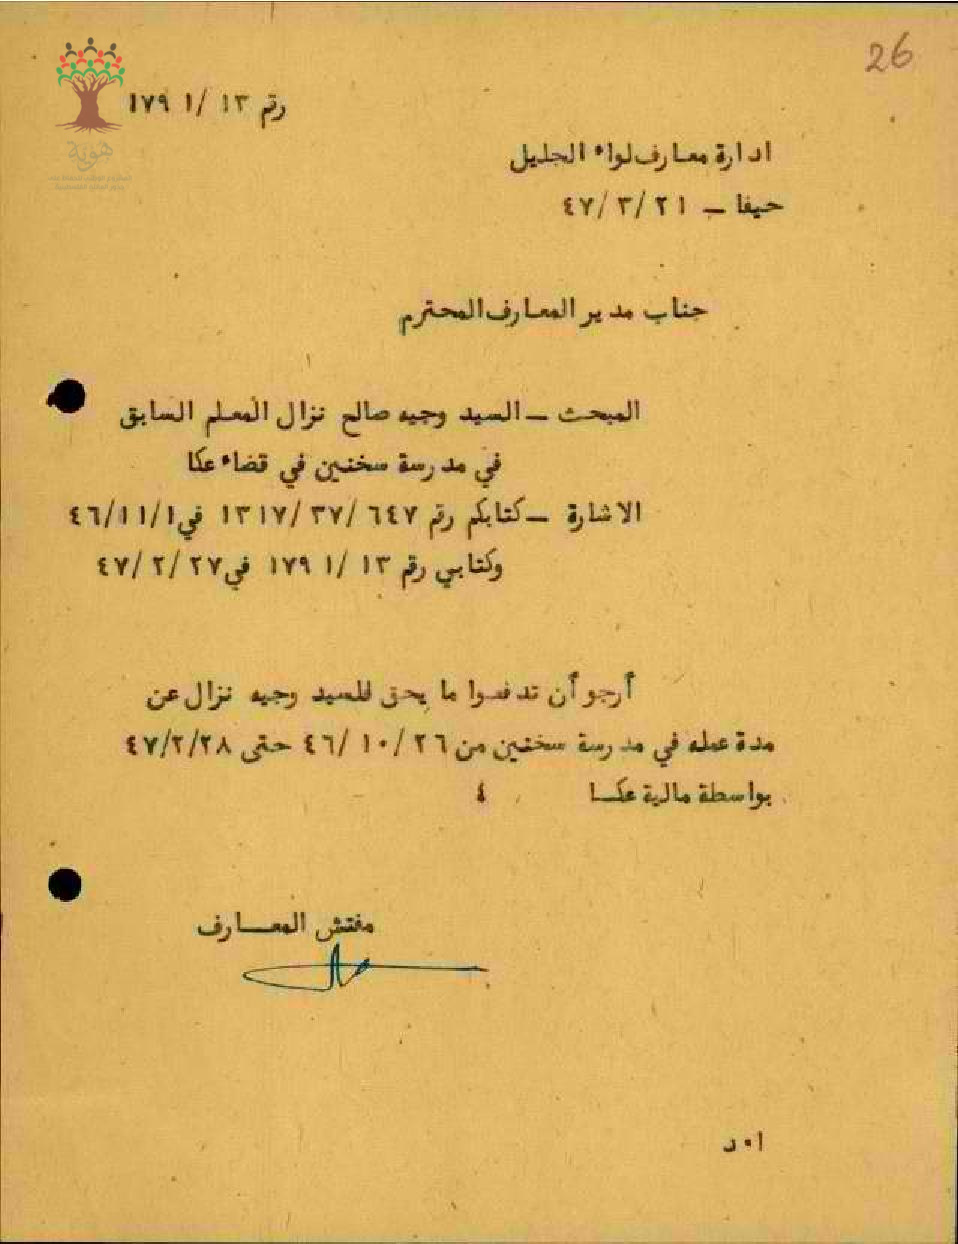 26
رقم ١٣ /١ ١٧٩
هوية
ادارة معارف لواء الجليل
حيفا – ٢١ /٣ /٤٧
جناب مدير المعارف المحترم
المبحث – السيد وجيه صالح نزال المعلم السابق
في مدرسة سخنين في قضاء عكا
الاشارة – كتابكم رقم ٦٤٧ /٣٧ /١٣١٧ في ١/١١/٤٦
وكتابي رقم ١٣ /١ ١٧٩ في ٢٧ /٢ /٤٧
أرجو أن تدفعوا ما يحق للسيد وجيه نزال عن
مدة عمله في مدرسة سخنين من ٢٦ /١٠ /٤٦ حتى ٤٧/٢/٢٨
بواسطة مالية عكا ٤
مفتش المعارف
ا٠د